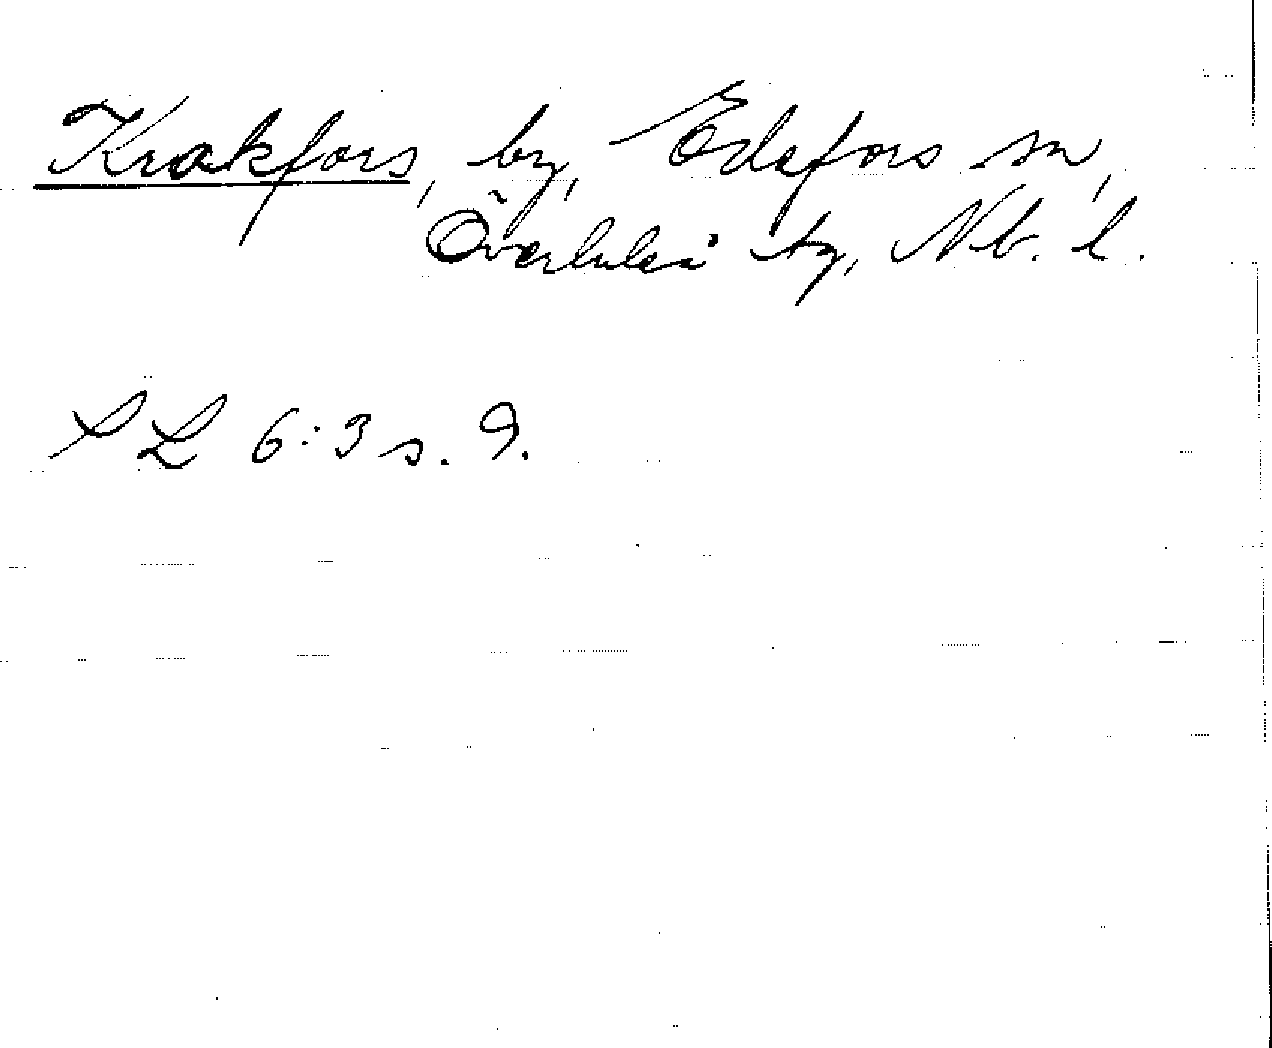 Krokfors, by, Edefors sn,
Överluleå tg, Nb. l.
SL 6:3 s. 9.